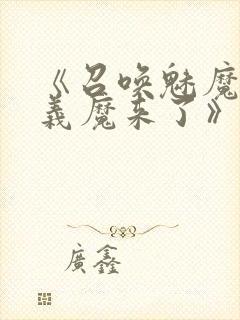 《召唤魅魔
義魔来了》
廣鑫